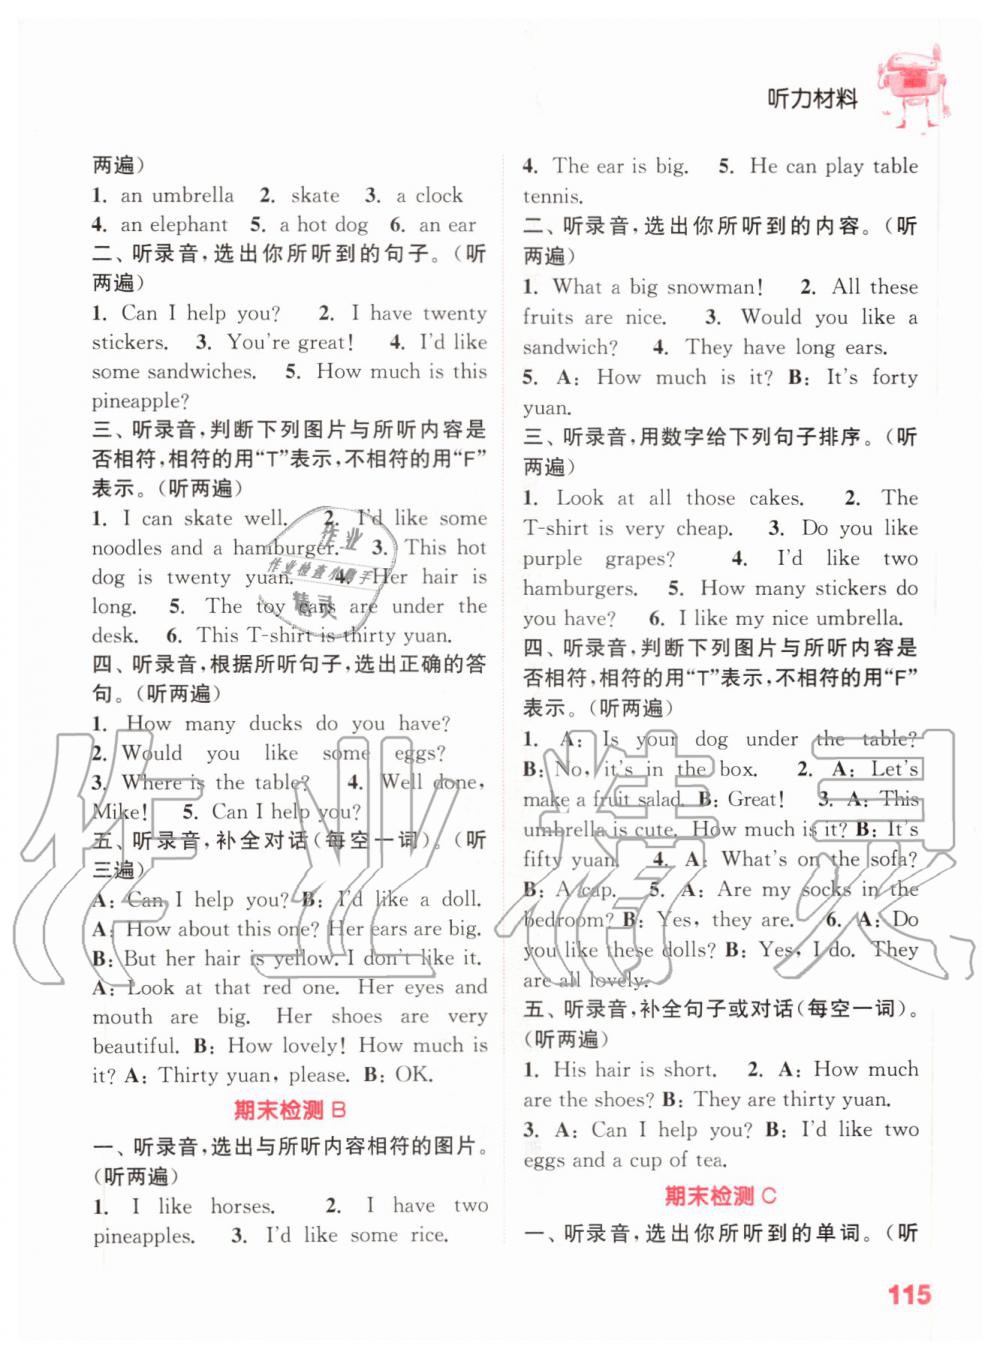 听力材料
两遍）
1. an umbrella 2. skate 3. a clock
4. an elephant 5. a hot dog 6. an ear
二、听录音，选出你所听到的句子。（听
两遍）
1. Can I help you? 2. I have twenty
stickers. 3. You're great! 4. I'd like
some sandwiches. 5. How much is this
pineapple?
三、听录音，判断下列图片与所听内容是
否相符，相符的用“T”表示，不相符的用“F”
表示。（听两遍）
1. I can skate well. 2. I'd like some
noodles and a hamburger. 3. This hot
dog is twenty yuan. 4. Her hair is
long. 5. The toy cars are under the
desk. 6. This T-shirt is thirty yuan.
四、听录音，根据所听句子，选出正确的答
句。（听两遍）
1. How many ducks do you have?
2. Would you like some eggs?
3. Where is the table? 4. Well done,
Mike! 5. Can I help you?
五、听录音，补全对话（每空一词）。（听
三遍）
A: Can I help you? B: I'd like a doll.
A: How about this one? Her ears are big.
B: But her hair is yellow. I don't like it.
A: Look at that red one. Her eyes and
mouth are big. Her shoes are very
beautiful. B: How lovely! How much is
it? A: Thirty yuan, please. B: OK.
期末检测 B
一、听录音，选出与所听内容相符的图片。
（听两遍）
1. I like horses. 2. I have two
pineapples. 3. I'd like some rice.
4. The ear is big. 5. He can play table
tennis.
二、听录音，选出你所听到的内容。（听
两遍）
1. What a big snowman! 2. All these
fruits are nice. 3. Would you like a
sandwich? 4. They have long ears.
5. A: How much is it? B: It's forty
yuan.
三、听录音，用数字给下列句子排序。（听
两遍）
1. Look at all those cakes. 2. The
T-shirt is very cheap. 3. Do you like
purple grapes? 4. I'd like two
hamburgers. 5. How many stickers do
you have? 6. I like my nice umbrella.
四、听录音，判断下列图片与所听内容是
否相符，相符的用“T”表示，不相符的用“F”
表示。（听两遍）
1. A: Is your dog under the table?
B: No, it's in the box. 2. A: Let's
make a fruit salad. B: Great! 3. A: This
umbrella is cute. How much is it? B: It's
fifty yuan. 4. A: What's on the sofa?
B: A cap. 5. A: Are my socks in the
bedroom? B: Yes, they are. 6. A: Do
you like these dolls? B: Yes, I do. They
are all lovely.
五、听录音，补全句子或对话（每空一词）。
（听两遍）
1. His hair is short. 2. A: How much
are the shoes? B: They are thirty yuan.
3. A: Can I help you? B: I'd like two
eggs and a cup of tea.
期末检测 C
一、听录音，选出你所听到的单词。（听
115
作业
作业检查小助手
精灵
作业精灵